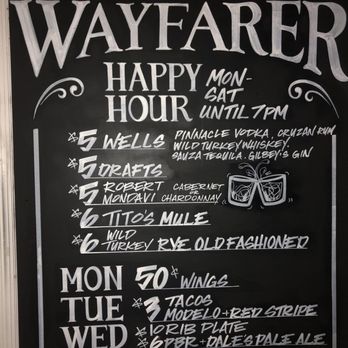 WAYFARER
HAPPY HOUR
MON-SAT
UNTIL 7PM
$5 WELLS PINNACLE VODKA, CRUZAN RUM
WILD TURKEY WHISKEY,
SAUZA TEQUILA, GILBEY'S GIN
$5 DRAFTS
$5 ROBERT MONDAVI CABERNET OR CHARDONNAY
$6 TITO'S MULE
$6 WILD TURKEY RYE OLD FASHIONED
MON 50¢ WINGS
TUE $3 TACOS
MODELO + RED STRIPE
WED $10 RIB PLATE
$6 PBR + DALE'S PALE ALE